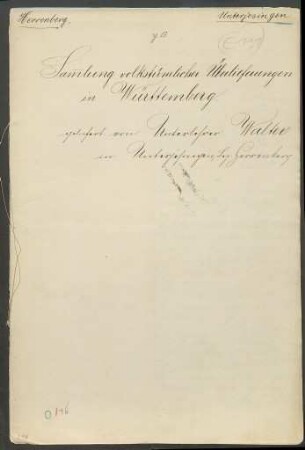 Herrenberg.
Unterjesingen
Samlung volkstümlicher Überlieferungen
in Württemberg
geliefert von Unterlehrer Walter
in Unterjesingen, Bez. Herrenberg
146